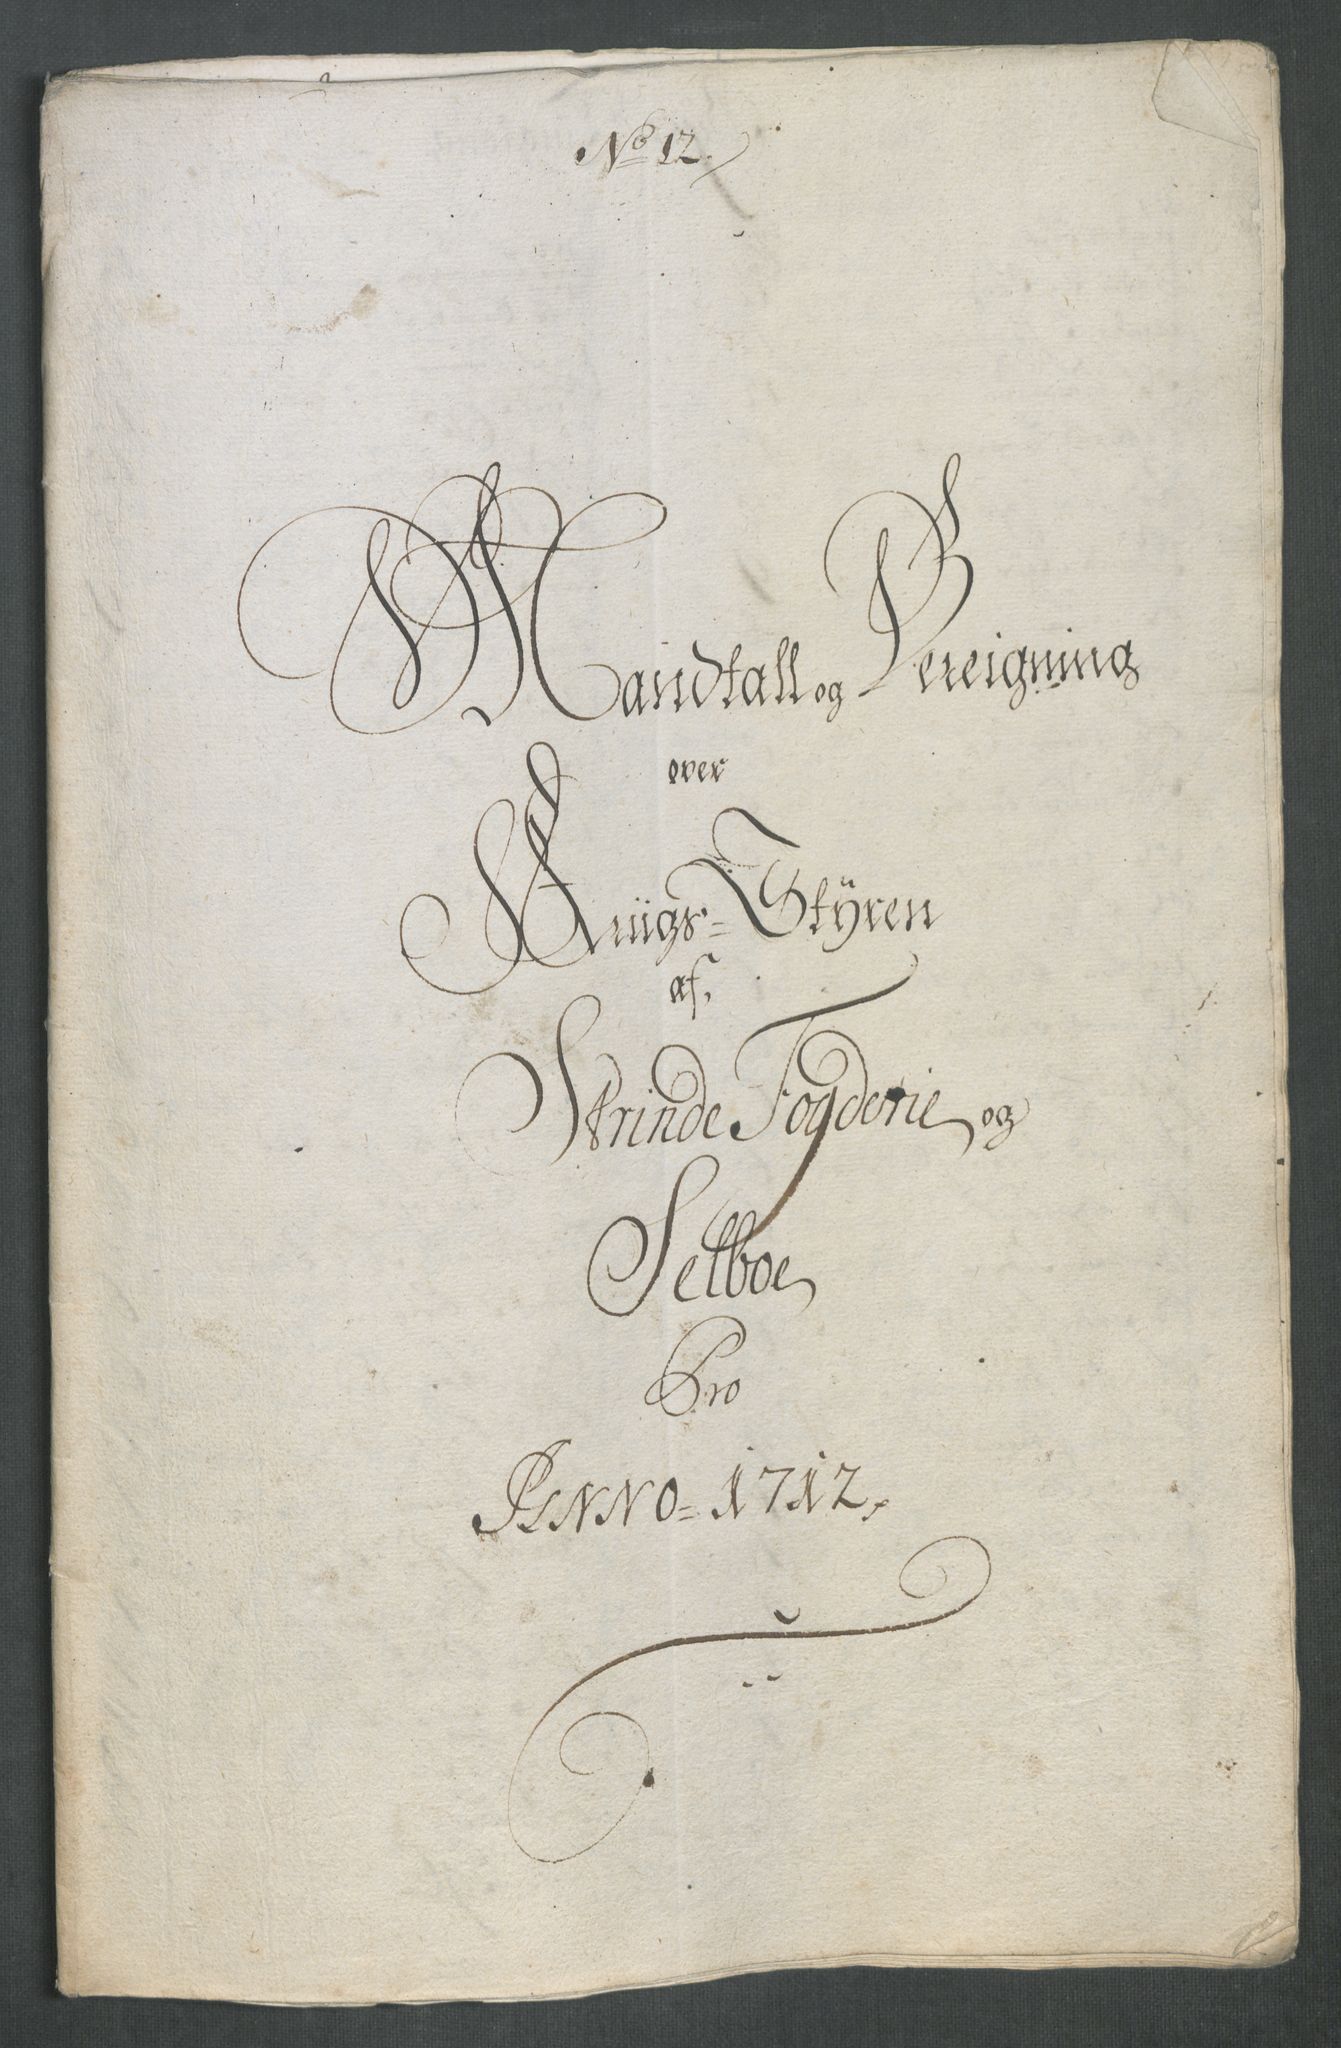 No 12.
Mandtall og Bereigning
over
Kriigs=Styren
af
Strinde Fogderie og
Selboe
Pro
ANNO=1712.